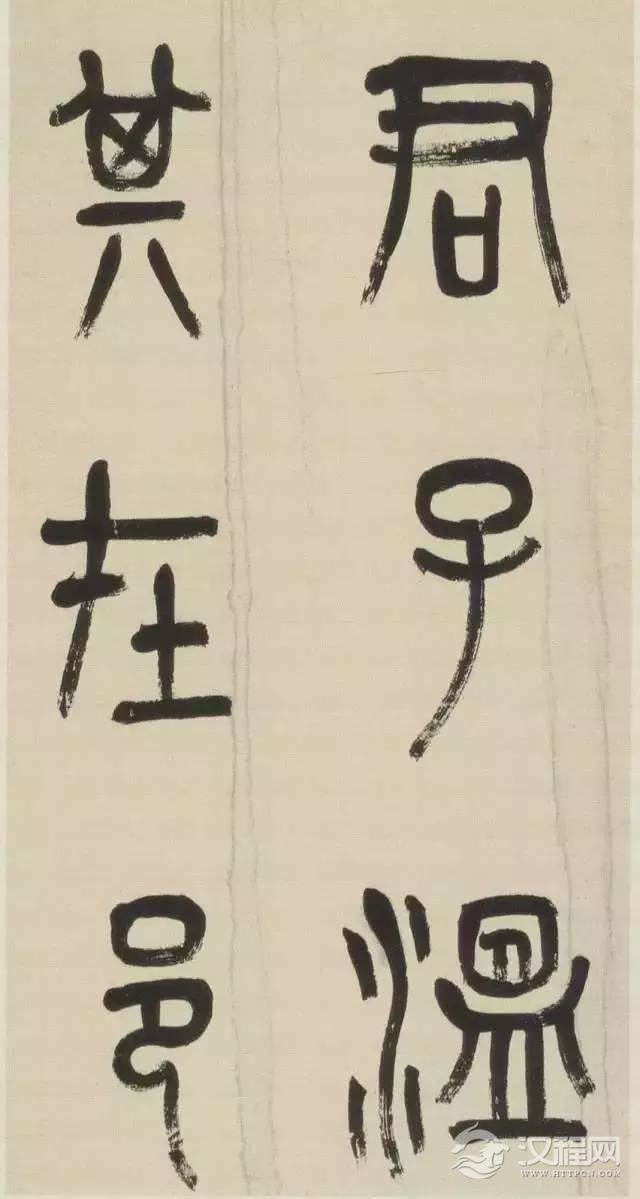 君子温
其在邑
汉程网
WWW.HTTPCN.COM